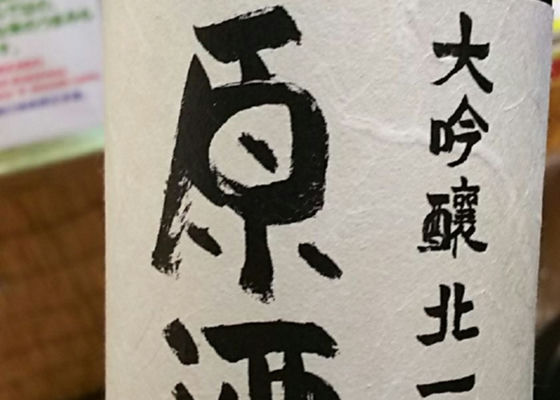 大吟醸北一
原酒